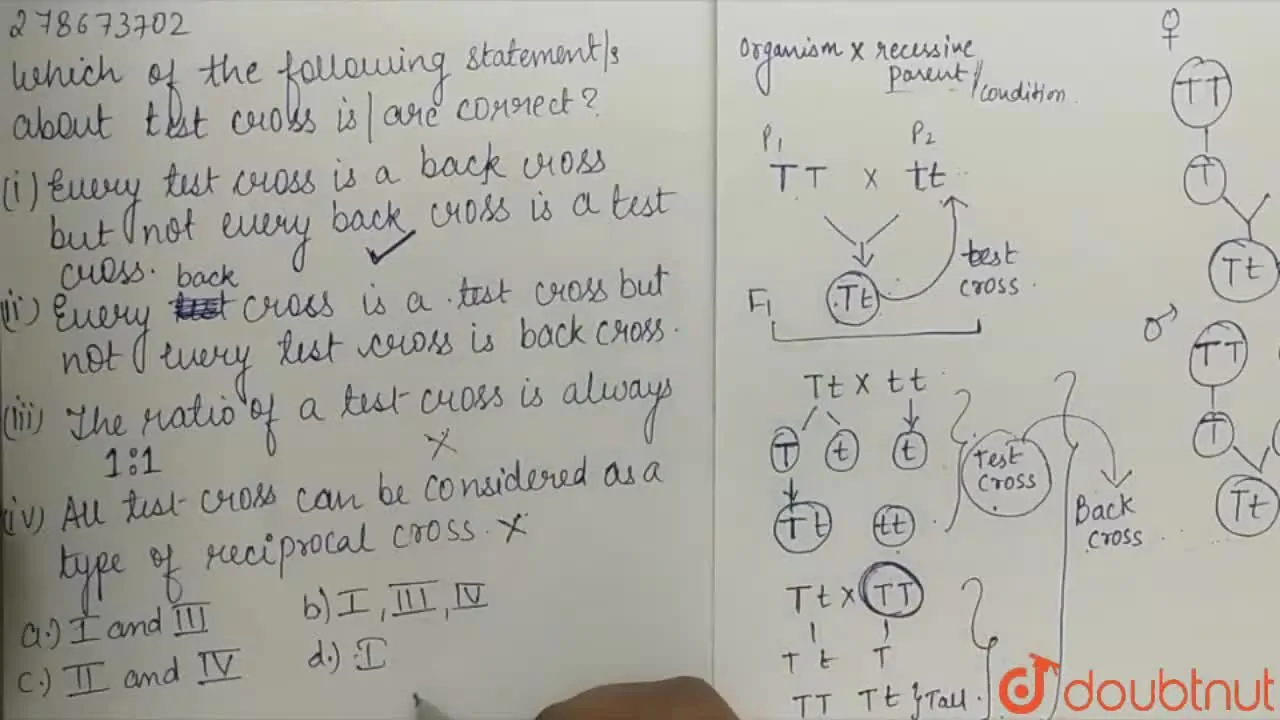 278673702
Which of the following statement/s
about test cross is/are correct?
(i) Every test cross is a back cross
but not every back cross is a test
cross.
back
(ii) Every cross is a test cross but
not every test cross is back cross.
(iii) The ratio of a test cross is always
1:1
(iv) All test cross can be considered as a
type of reciprocal cross. X
a.) I and III
b) I, III, IV
c.) II and IV
d.) I
organism x recessive
parent/
condition.
P1 P2
TT x tt
Tt
test
cross
F1
Tt x tt
T t t
Tt tt
Test
cross
Back
cross
Tt x TT
T t T
TT Tt } Tall
♀
TT
T
Tt
♂
TT
T
Tt
doubtnut